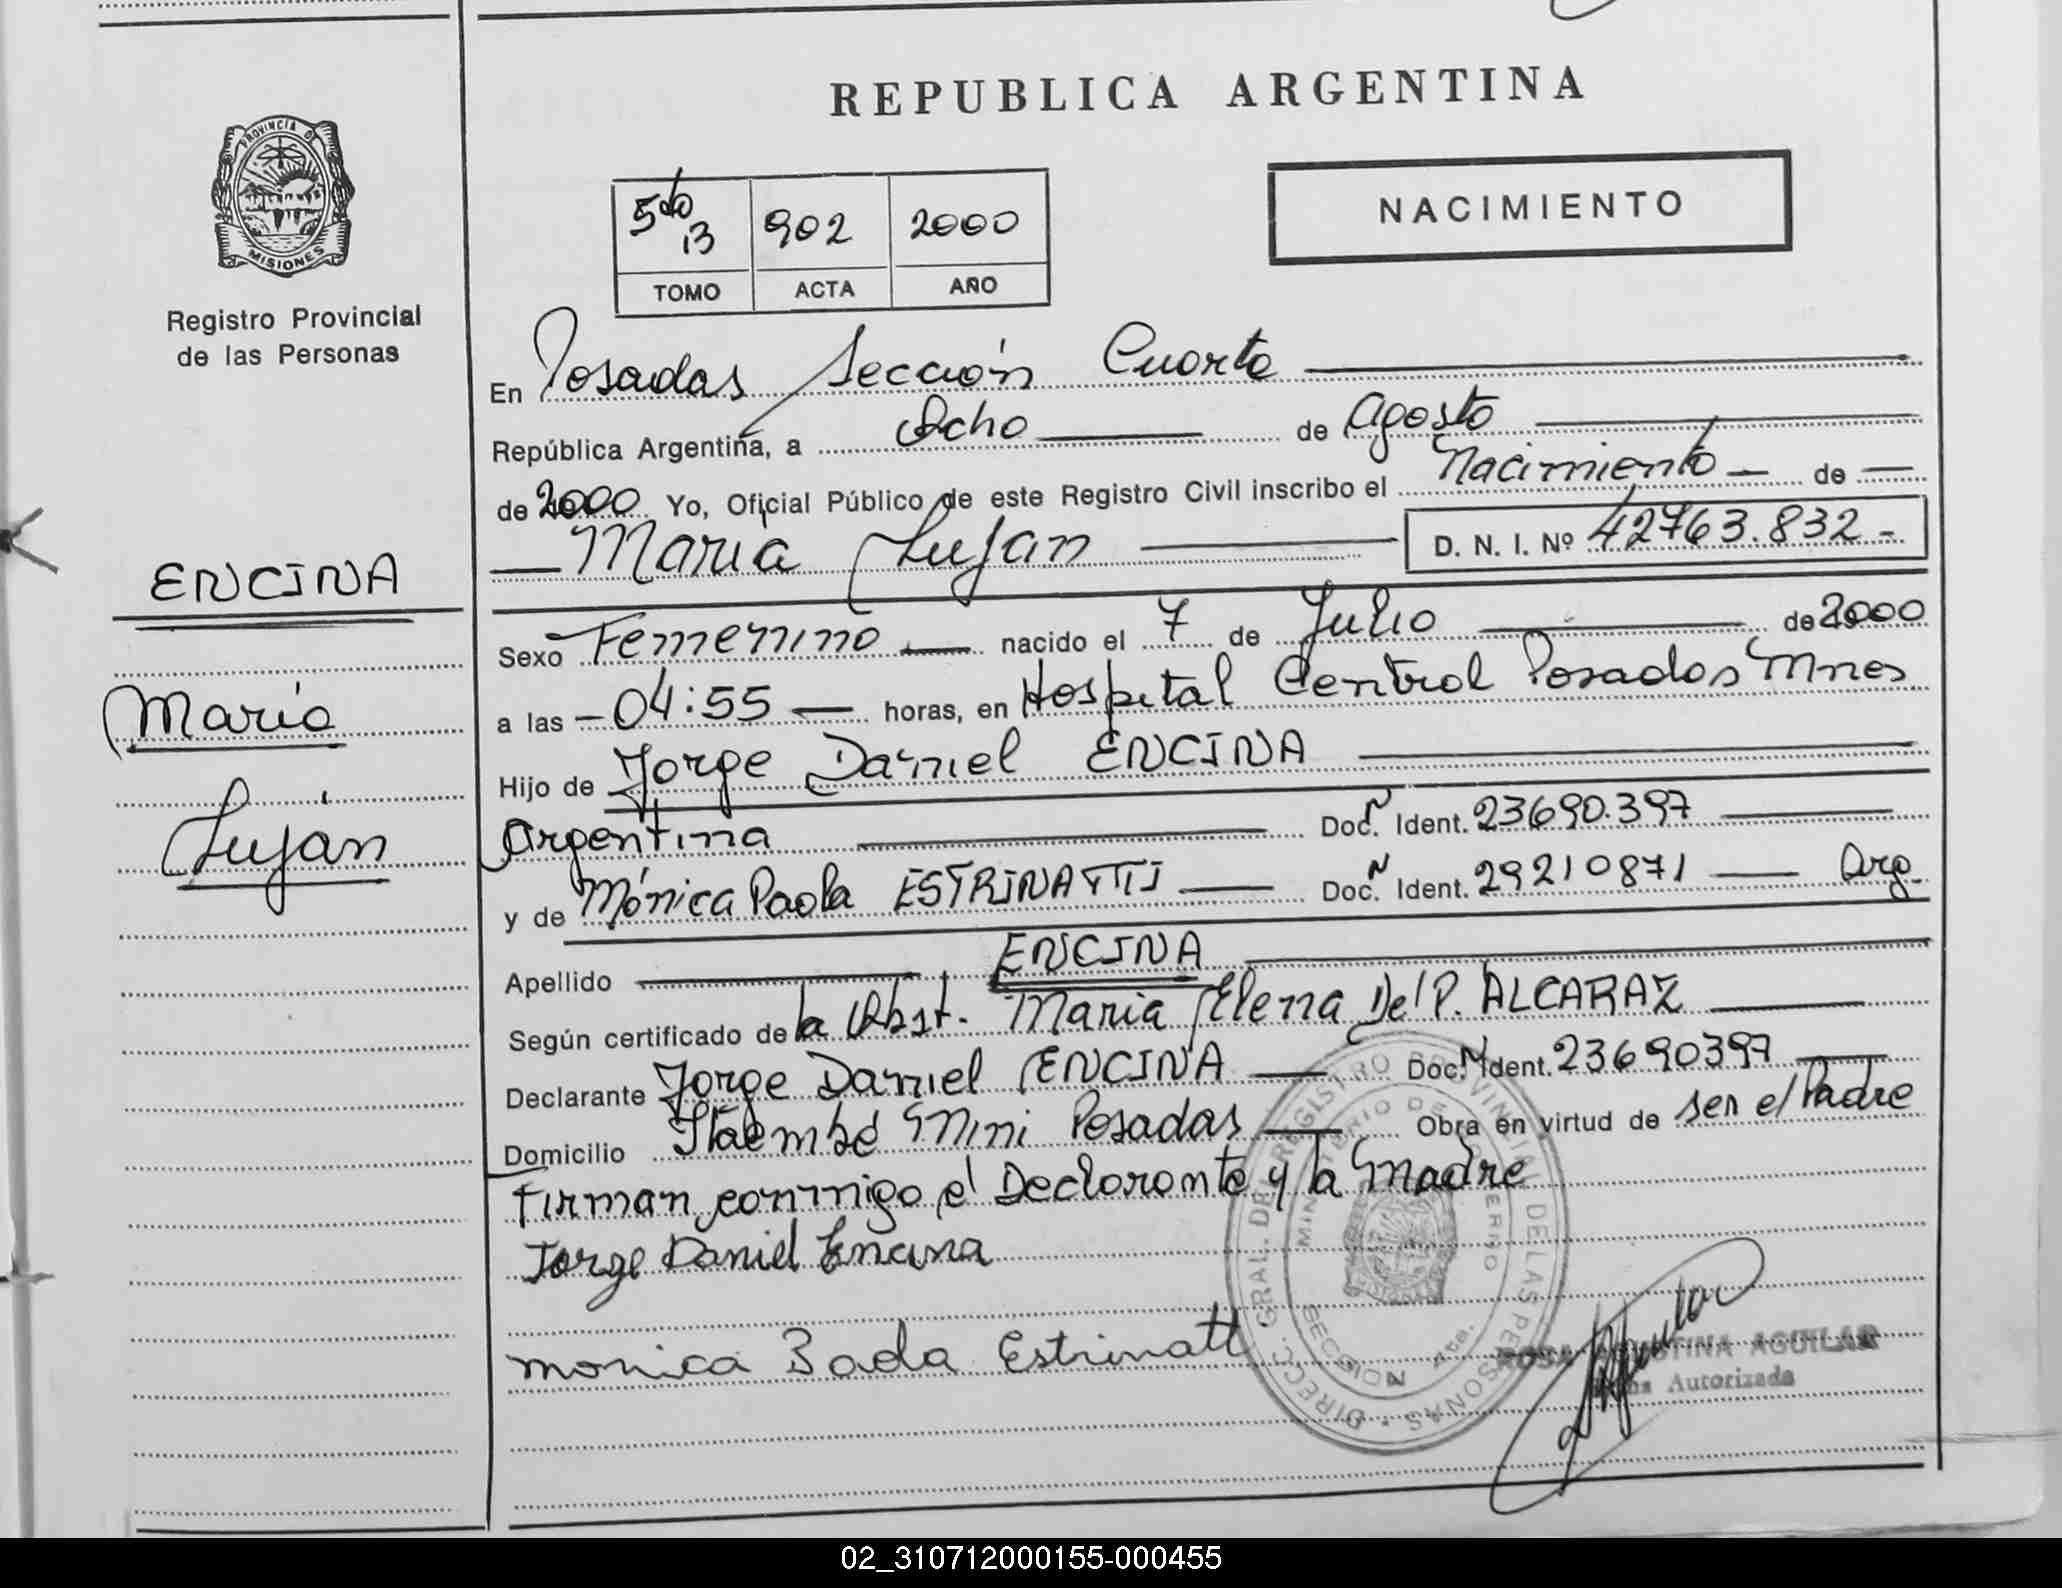 REPUBLICA ARGENTINA
PROVINCIA DE
MISIONES
Registro Provincial
de las Personas
ENCINA
María
Luján
5to 13 902 2000
TOMO ACTA AÑO
NACIMIENTO
En Posadas Sección Cuarta
República Argentina, a Ocho de Agosto
de 2000 Yo, Oficial Público de este Registro Civil inscribo el Nacimiento de
María Luján D. N. I. Nº 42763.832-
Sexo Femenino nacido el 7 de Julio de 2000
a las 04:55 horas, en Hospital Central Posadas Mnes
Hijo de Jorge Daniel ENCINA
Argentina Doc. N Ident. 23690.397
y de Mónica Paola ESTRINATTI Doc. N Ident. 29210871 Arg.
Apellido ENCINA
Según certificado de la Obst. María Elena Del P. ALCARAZ
Declarante Jorge Daniel ENCINA Doc. N Ident. 23690397
Domicilio Itaembé Mini Posadas Obra en virtud de ser el Padre
Firman conmigo el Declarante y la Madre
Jorge Daniel Encina
monica Paola Estrinatti
DIRECC. GRAL. DE REGISTRO PROVINCIAL DE LAS PERSONAS
MINISTERIO DE GOBIERNO
SECCION 4ta.
ROSA AGUSTINA AGUILAR
Firma Autorizada
02_310712000155-000455